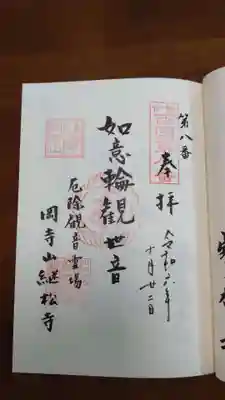 第八番
奉拝
令和六年
十月廿二日
如意輪観世音
厄除観音霊場
岡寺山継松寺